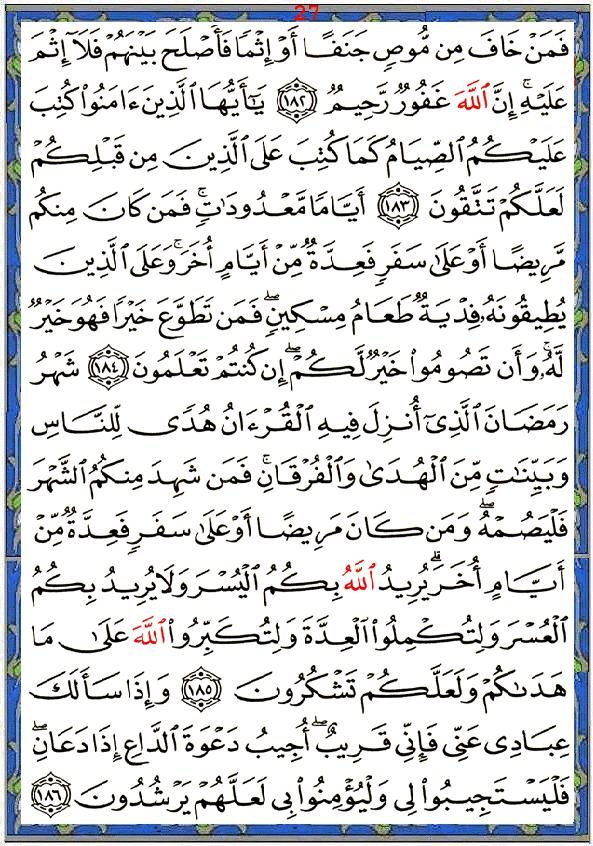 27
فَمَنْ خَافَ مِن مُّوصٍ جَنَفًا أَوْ إِثْمًا فَأَصْلَحَ بَيْنَهُمْ فَلَآ إِثْمَ
عَلَيْهِ ۚ إِنَّ ٱللَّهَ غَفُورٌ رَّحِيمٌ ١٨٢ يَـٰٓأَيُّهَا ٱلَّذِينَ ءَامَنُوا۟ كُتِبَ
عَلَيْكُمُ ٱلصِّيَامُ كَمَا كُتِبَ عَلَى ٱلَّذِينَ مِن قَبْلِكُمْ
لَعَلَّكُمْ تَتَّقُونَ ١٨٣ أَيَّامًا مَّعْدُودَٰتٍ ۚ فَمَن كَانَ مِنكُم
مَّرِيضًا أَوْ عَلَىٰ سَفَرٍ فَعِدَّةٌ مِّنْ أَيَّامٍ أُخَرَ ۚ وَعَلَى ٱلَّذِينَ
يُطِيقُونَهُۥ فِدْيَةٌ طَعَامُ مِسْكِينٍ ۖ فَمَن تَطَوَّعَ خَيْرًا فَهُوَ خَيْرٌ
لَّهُۥ ۚ وَأَن تَصُومُوا۟ خَيْرٌ لَّكُمْ ۖ إِن كُنتُمْ تَعْلَمُونَ ١٨٤ شَهْرُ
رَمَضَانَ ٱلَّذِىٓ أُنزِلَ فِيهِ ٱلْقُرْءَانُ هُدًى لِّلنَّاسِ
وَبَيِّنَـٰتٍ مِّنَ ٱلْهُدَىٰ وَٱلْفُرْقَانِ ۚ فَمَن شَهِدَ مِنكُمُ ٱلشَّهْرَ
فَلْيَصُمْهُ ۖ وَمَن كَانَ مَرِيضًا أَوْ عَلَىٰ سَفَرٍ فَعِدَّةٌ مِّنْ
أَيَّامٍ أُخَرَ ۗ يُرِيدُ ٱللَّهُ بِكُمُ ٱلْيُسْرَ وَلَا يُرِيدُ بِكُمُ
ٱلْعُسْرَ وَلِتُكْمِلُوا۟ ٱلْعِدَّةَ وَلِتُكَبِّرُوا۟ ٱللَّهَ عَلَىٰ مَا
هَدَىٰكُمْ وَلَعَلَّكُمْ تَشْكُرُونَ ١٨٥ وَإِذَا سَأَلَكَ
عِبَادِى عَنِّى فَإِنِّى قَرِيبٌ ۖ أُجِيبُ دَعْوَةَ ٱلدَّاعِ إِذَا دَعَانِ ۖ
فَلْيَسْتَجِيبُوا۟ لِى وَلْيُؤْمِنُوا۟ بِى لَعَلَّهُمْ يَرْشُدُونَ ١٨٦